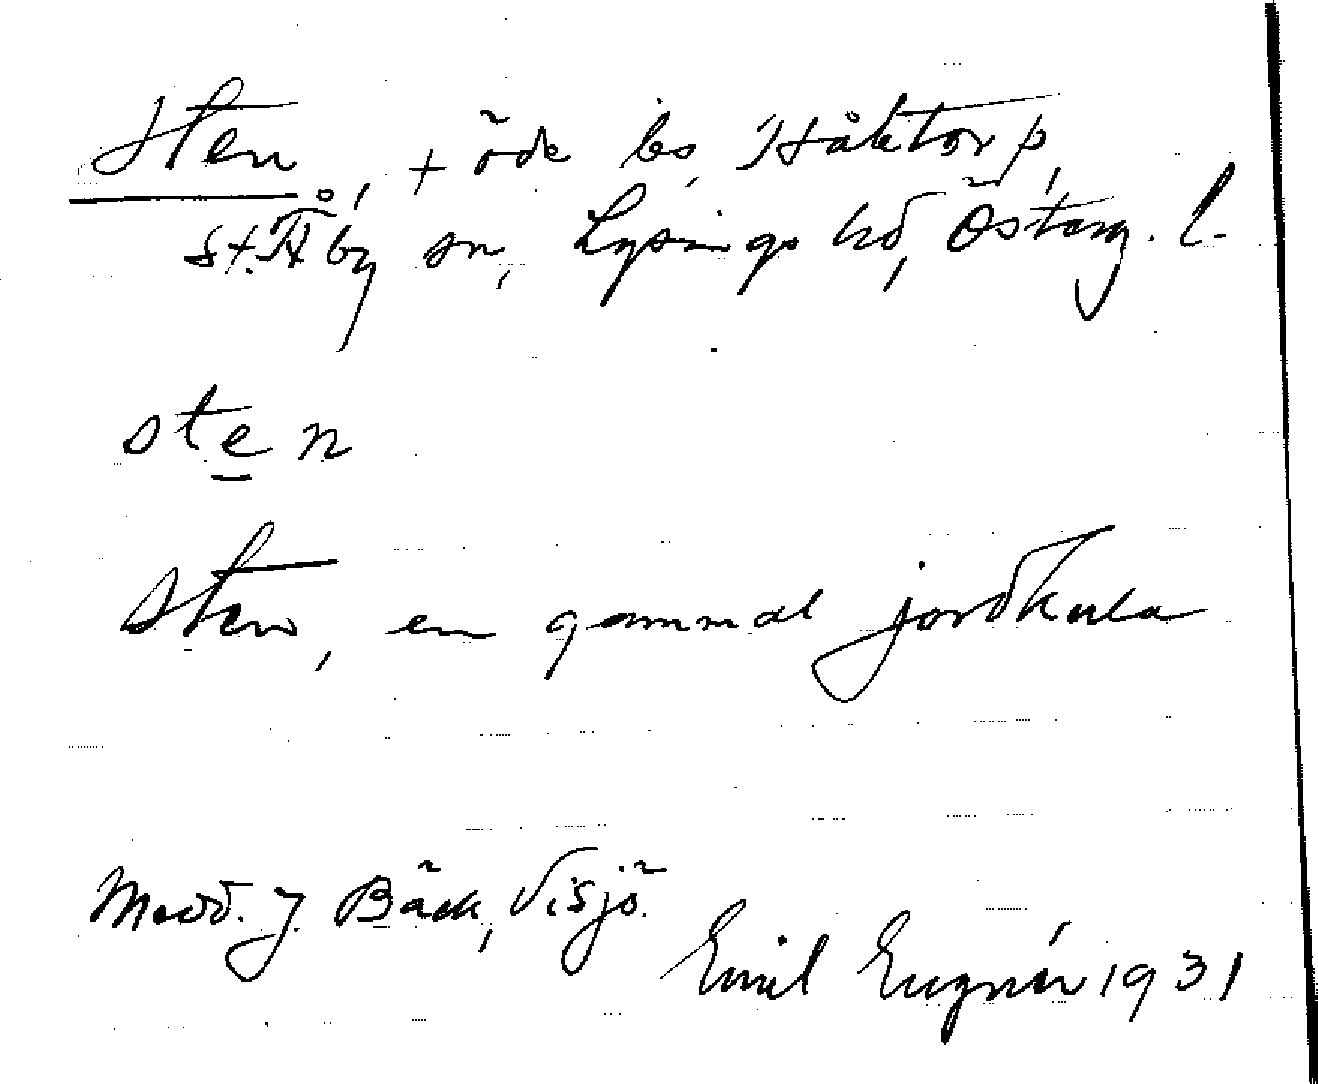 Sten, + öde bs, Håketorp,
St. Åby sn, Lysings hd, Österg. l.
sten
Sten, en gammal jordkula
Medd. J. Bäck, Visjö.
Emil Eugnér 1931